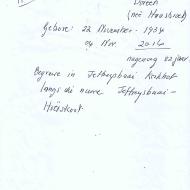 Doreen
(née Haasbroek)
Gebore: 22 November - 1934
04 Nov. 2016
82 jaar
Begrawe in Jeffreysbaai Kerkhof
langs die nuwe Jeffreysbaai -